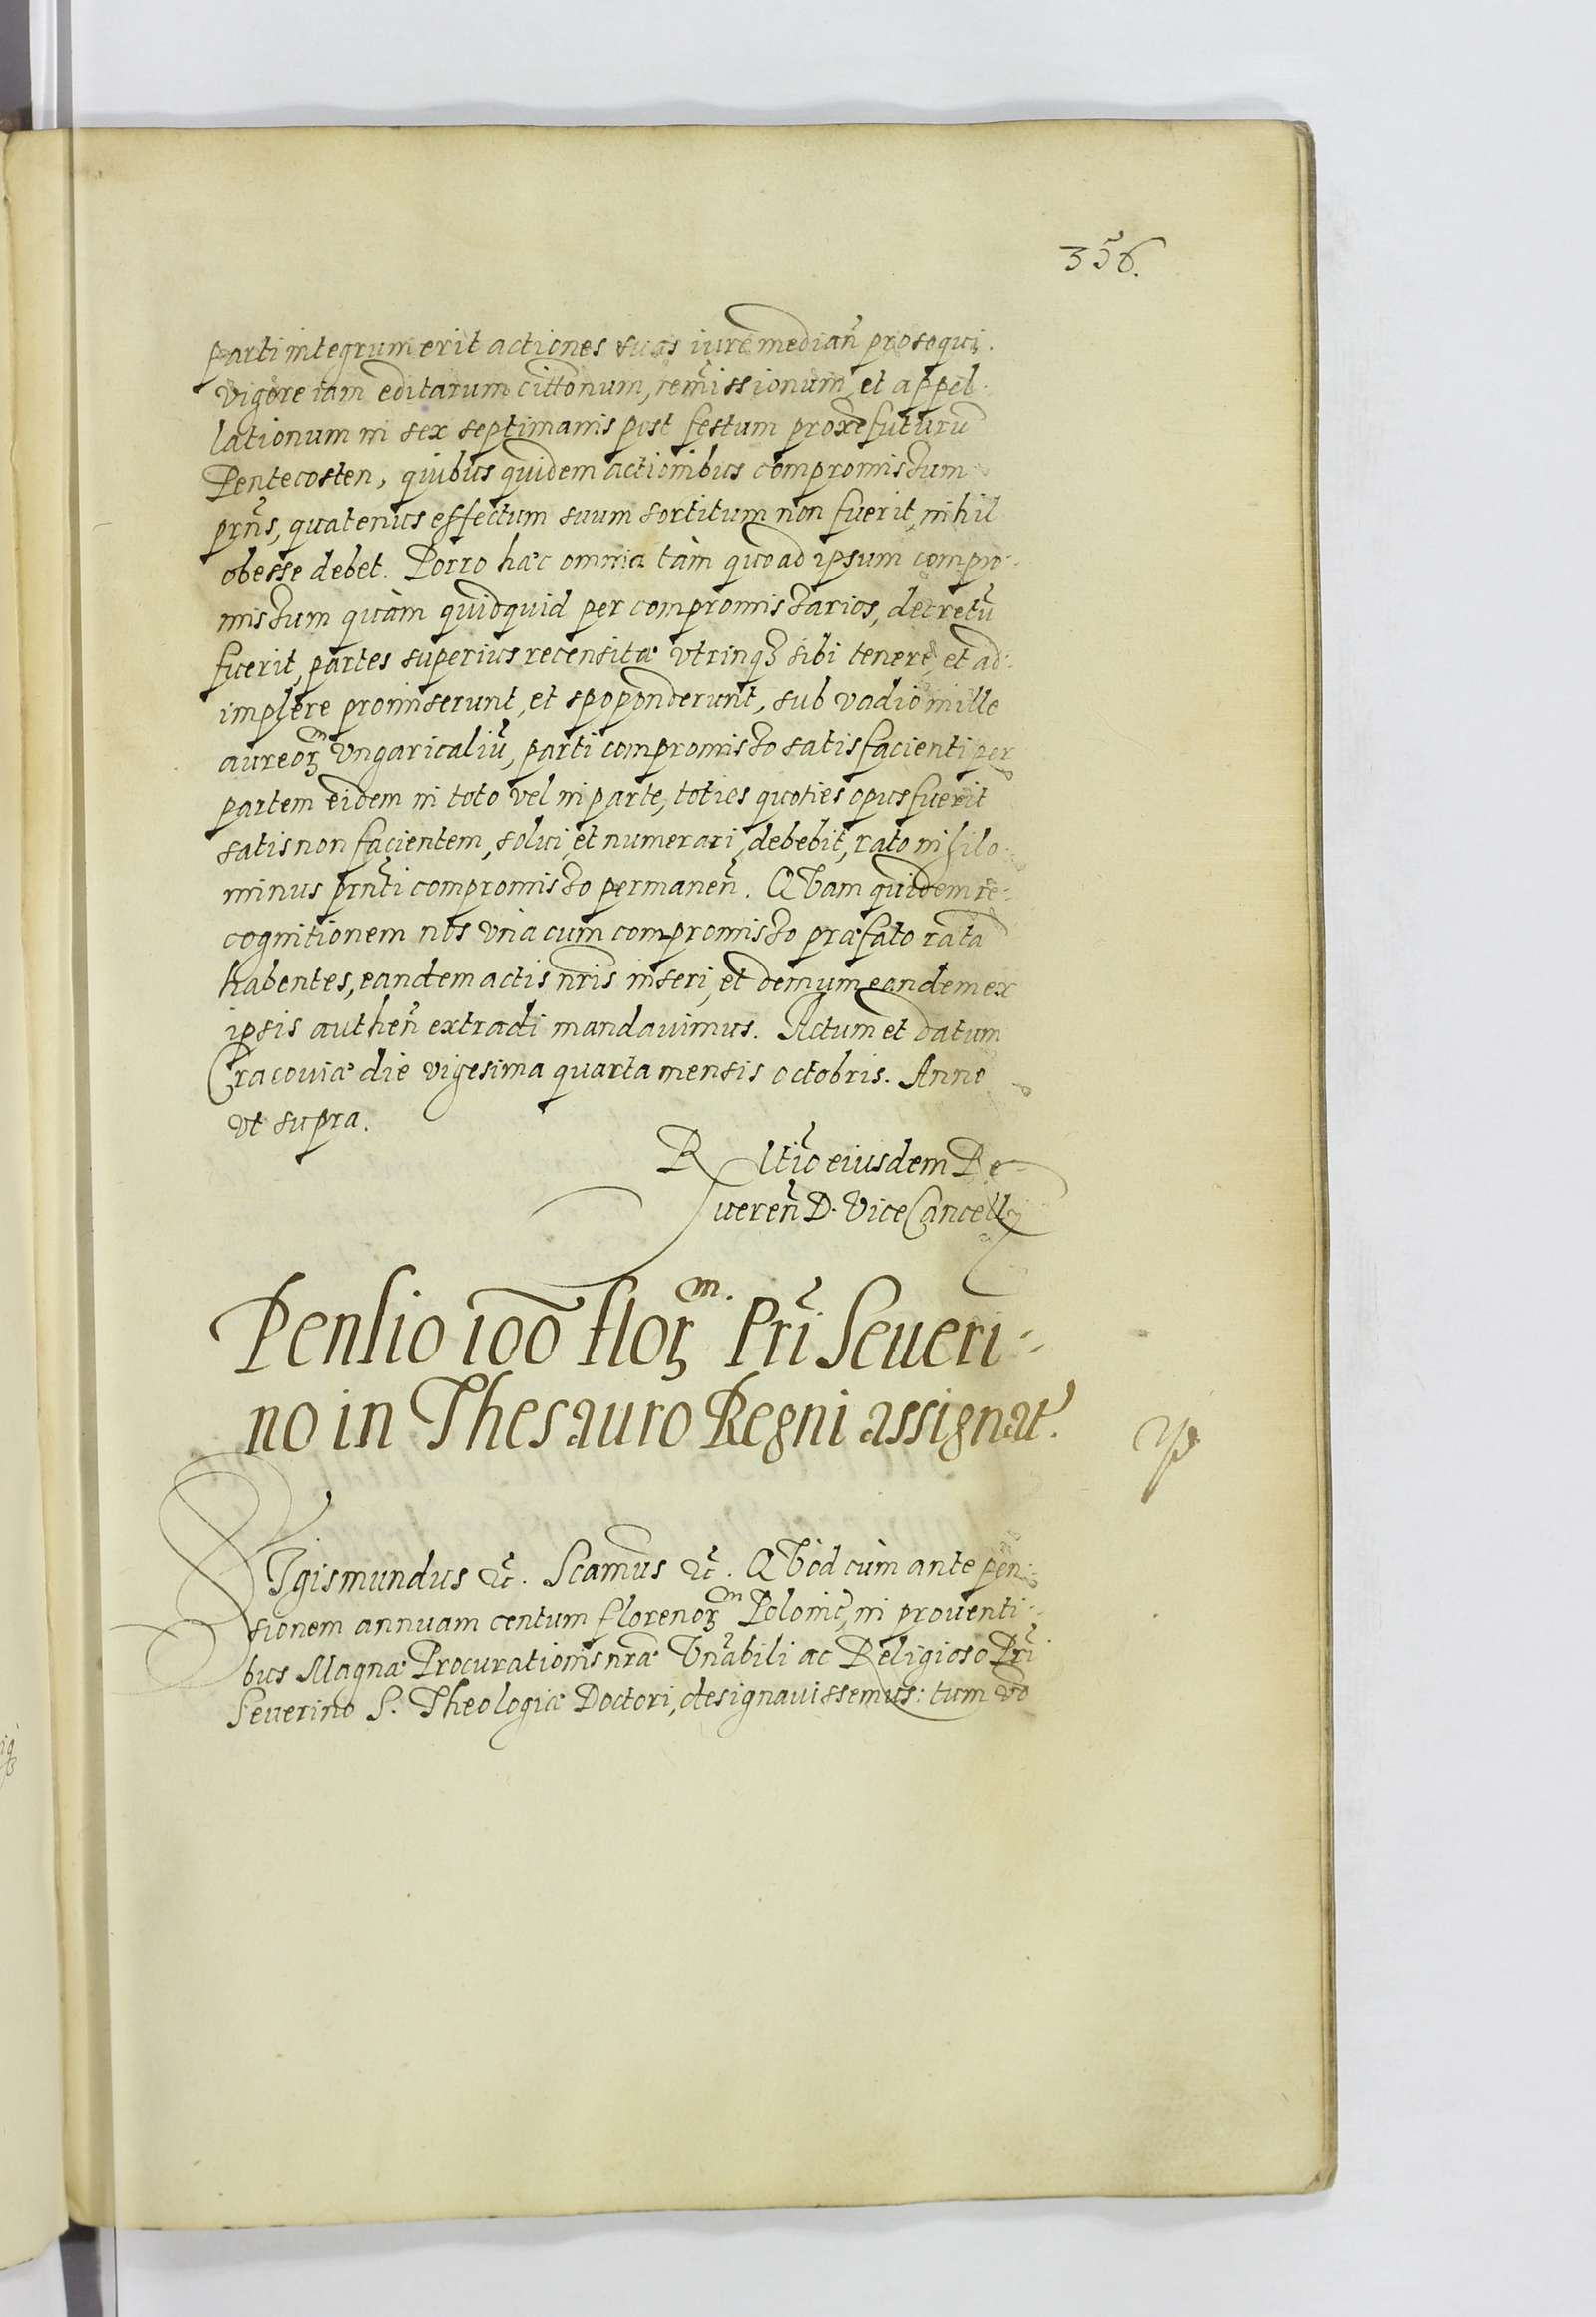 356.
parti integrum erit actiones suas iure median̄ prosequi.
vigore iam editarum citt̄onum, remissionum, et appel-
lationum in sex septimanis post festum proxe futurū
Pentecosten, quibus quidem actionibus compromissum
prn̄s, quatenus effectum suum sortitum non fuerit, nihil
obesse debet. Porro hæc omnia tàm quoad ipsum compro-
missum quàm quidquid per compromissarios, decretū
fuerit, partes superius recensitæ vtrinqȝ sibi tenere, et ad-
implere promiserunt, et spoponderunt, sub vadio mille
aureoꝝm Vngaricaliū, parti compromisso satisfacienti per
partem eidem in toto vel in parte, toties quoties opus fuerit
satis non facientem, solui, et numerari, debebit, rato nihilo-
minus prn̄ti compromisso permanen̄. QVam quidem re-
cognitionem nos vnà cum compromisso præfato ratā
habentes, eandem actis nr̄is inseri, et demum eandem ex
ipsis authen̄ extradi mandauimus. Actum et datum
Cracouiæ die vigesima quarta mensis octobris. Anno
vt supra.
R ltio eiusdem Re-
ueren̄ D. Vice Cancellrj
Pensio 100 floꝝm. Pri Seueri-
no in Thesauro Regni assignat.
SIgismundus ec̄. Scamus ec̄. QVòd cùm ante pen-
sionem annuam centum florenoꝝm Polonic, in prouenti-
bus Magnæ Procurationis nræ Vnabili ac Religioso Pri
Seuerino S. Theologiæ Doctori, designauissemus: tum vo